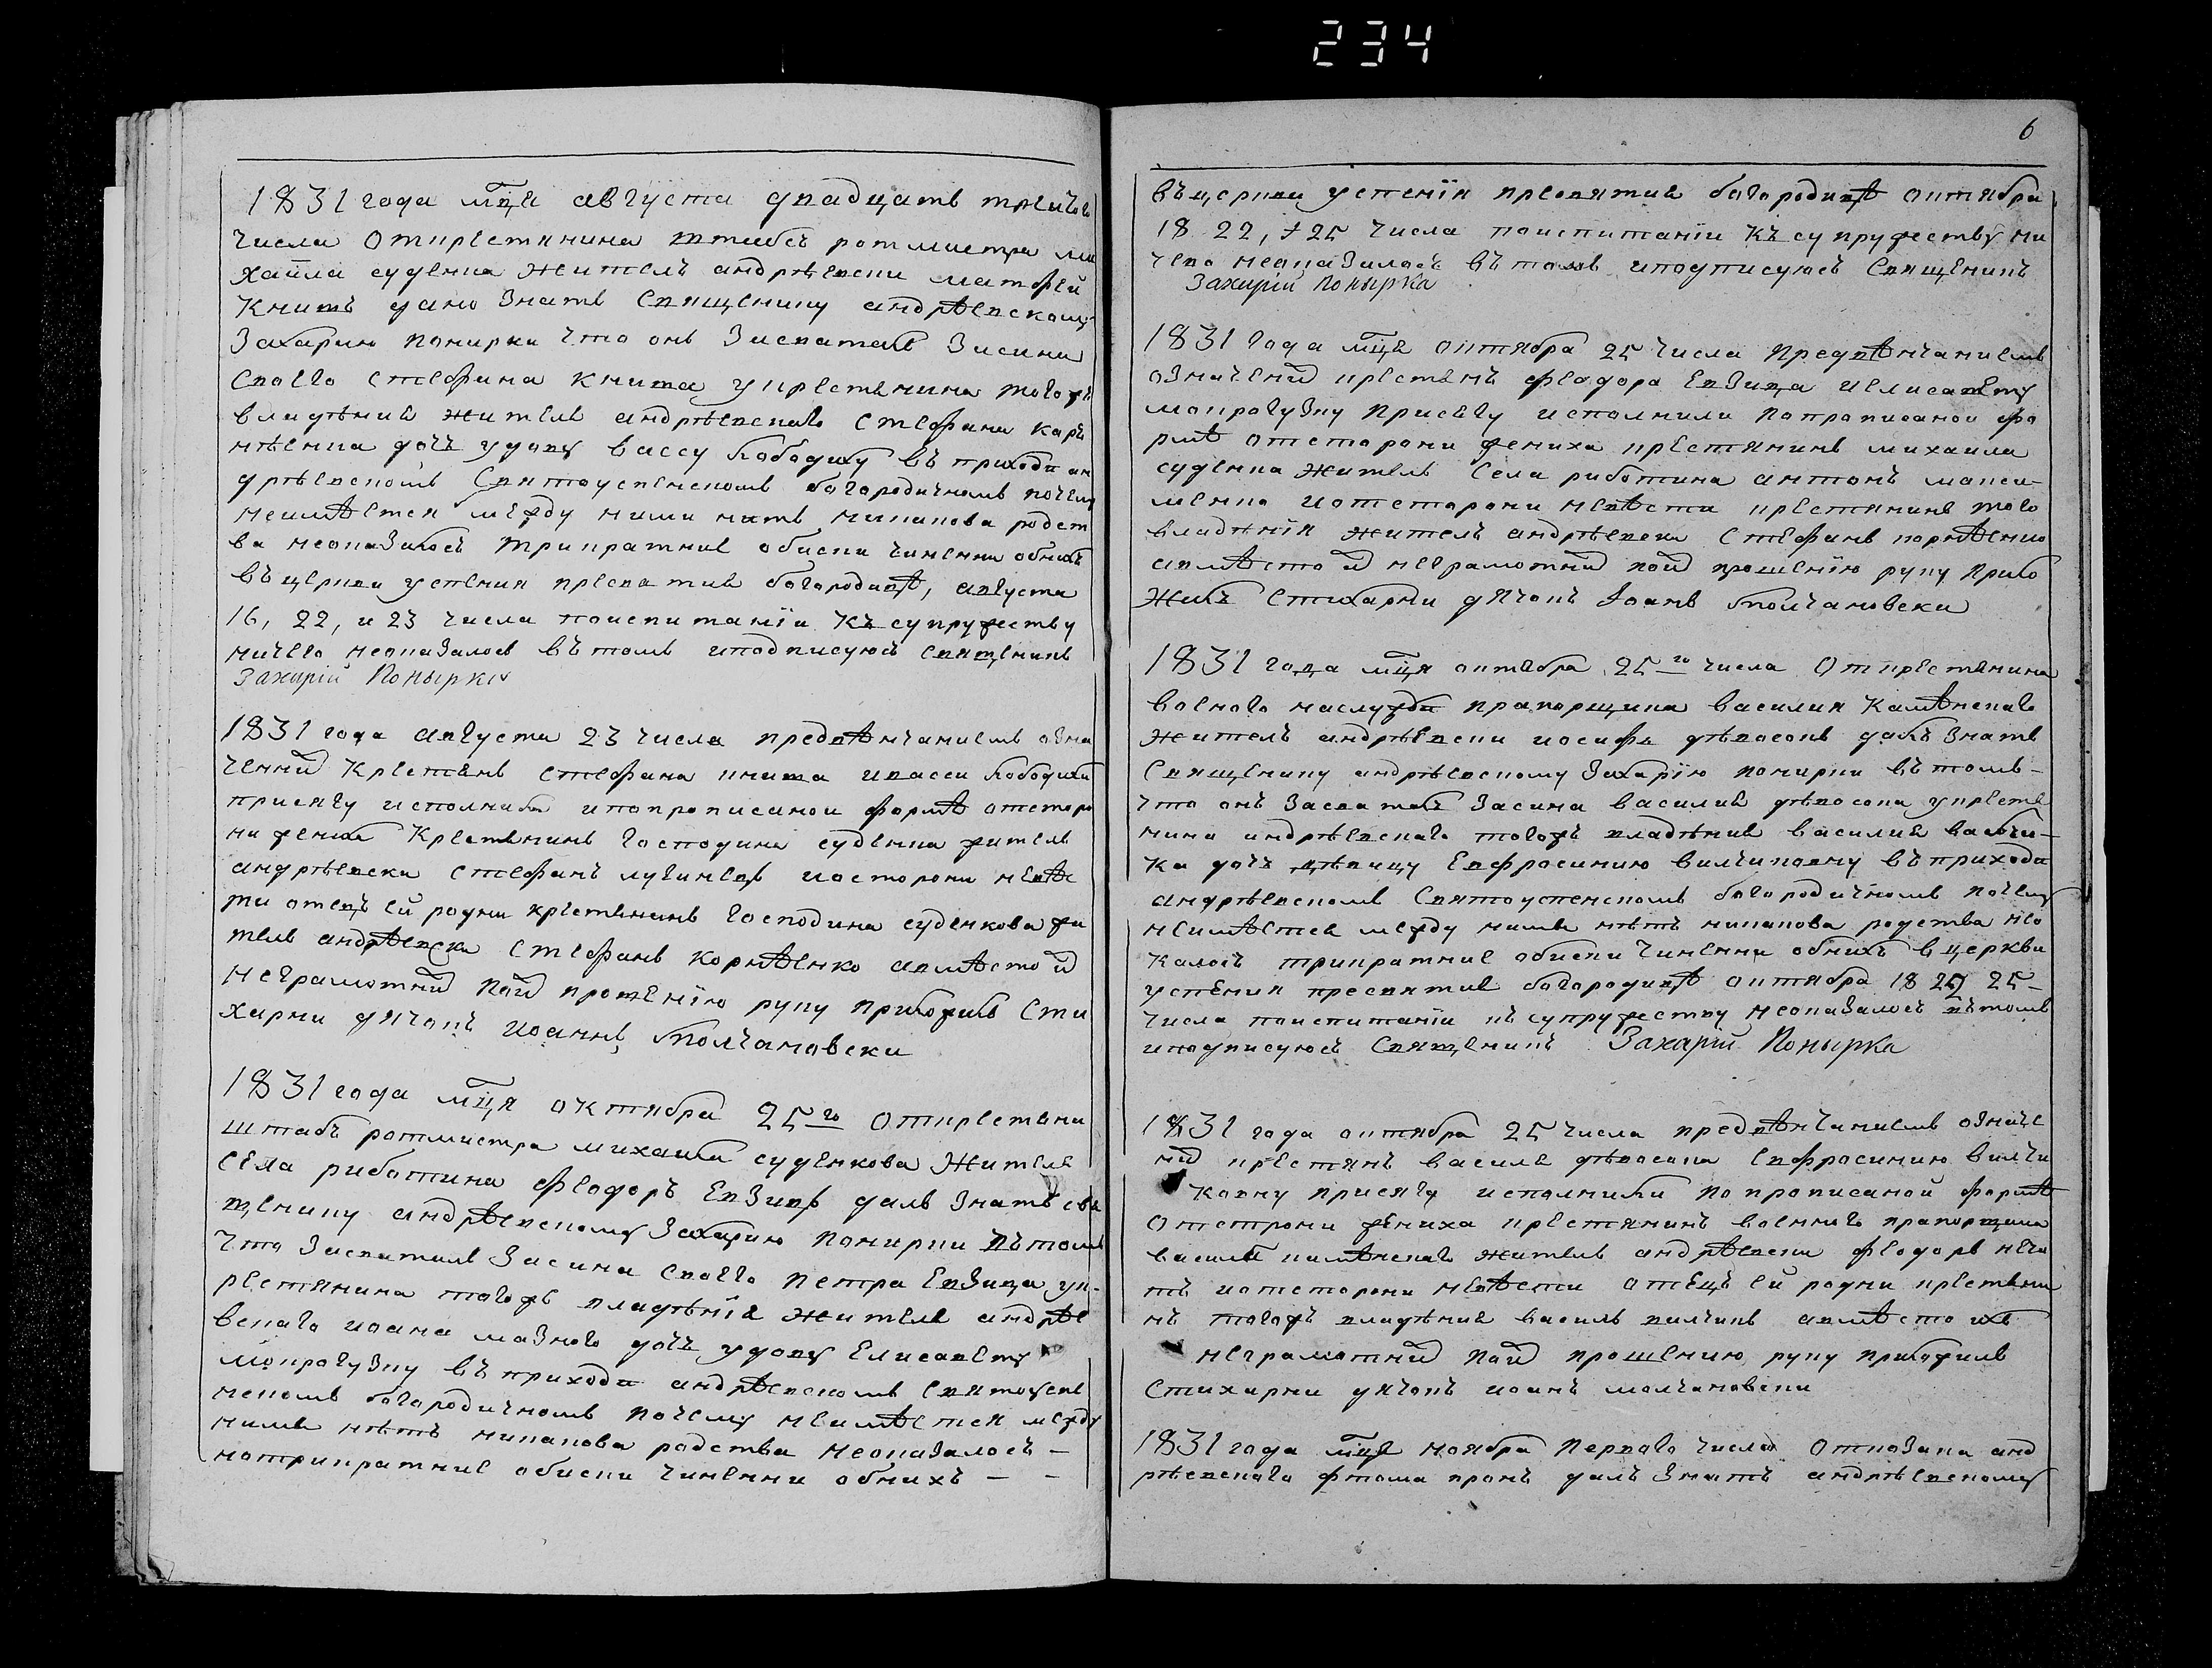 234
1831 года мц҃а августа двадцать третьего
числа Открестянина штабсъ ротмистра ми
хаила суденка житель андрѣевки матфей
Книшъ дано знать Священику андрѣевскому
Захарию Понирки что онъ Засваталъ Засина
Своего Стефана Книша укрестянина того жъ
владѣния жителя андрѣевскаго Стефана Корь
нѣенка дочь удову вассу бободиху въ приходи ан
дрѣевскомъ Святоуспенскомъ богородичномъ почему
неимѣется между ними нить никакова родст
ва неоказалось Трикратние обиски чиненни обнихъ
въ церкви успения пресвятия богородицѣ, августа
16, 22, и 23 числа поиспитанїи Къ супружеству
ничего неоказалось въ томъ иподписуюсь священикъ
Захарій Понырка
1831 года Августа 23 числа предвѣнчаниемъ озна
ченний Крестянъ Стефана книша ивасси бободихи
присягу исполнили ипопрописаной формѣ отсторо
ни жениха Крестянинъ Господина суденка житель
андрѣевски Стефанъ иосторони невѣс
ти отецъ ей родни крестянинъ Господина суденкова жи
тель андрѣевски Стефанъ Корнѣенко авмѣсто ѝ
неграмотний Пой прошенїю руку приложилъ Сти
харни дячокъ иоаннъ Молчановски
1831 года мц҃я октября 25го Открестяни
штабъ ротмистра михаила суденкова Житель
села риботина Феодоръ Евзикъ далъ Знать свя
щенику андрѣевскому Захарию Понирки въ томъ
что Засваталъ Засина Своего Петра Евзика ук-
рестянина того жъ владѣнїя жителя андрѣе
вскаго иоана мазного дочь удову Елисавету
мокрогузку въ приходи андрѣевскомъ Святоуспе
нскомъ богородичномъ Почему неимѣется между
ними нѣтъ никакова родства неоказалось —
нотрикратние обиски чиненни обнихъ — —
6
въ церкви успенїя пресвятия богородицѣ октября
18 22, 25 числа поиспитанїи Къ супружеству ни
чево неоказалось въ томъ иподписуюсь Священикъ
Захарій Понырка
1831 Года мц҃я октября 25 числа Предвѣнчаниемъ
означений крестянъ феодора Евзика иелисавету
мокрогузку Присягу исполнили Попрописаной фо
рмѣ отсторони жениха крестянинъ михаила
суденка житель Села риботина антонъ макси-
менко иотсторони невѣсти крестянинъ того
владѣнїя житель андрѣевски Стефанъ корнѣенко
авмѣсто ѝ неграмотний пой прошенїю руку прило
жилъ Стихарни дячокъ Іоанъ Молчановски
1831 года мц҃я октября 25го числа Открестянина
воснаго наслужби прапорщика василия Камѣнскаго
житель андрѣевки иосифъ дѣвосонъ далъ знать
Священику андрѣевскому Захарїю понирки въ томъ-
что онъ Засваталъ Засина василия дѣвосона укрестя
нина андрѣевскаго того жъ владѣния василия вильчи-
ка дочь дѣвицу Евфросинию вилчиковну въ приходи
андрѣевскомъ Святоуспенскомъ богородичномъ почему
неимѣется между ними нѣтъ никакова родства нео
калось трикратние обиски чиненни обнихъ в церкви
успения пресвятия богородицѣ октября 18 22 25-
числа поиспитанїи къ супружеству неоказалось въ томъ
иподписуюсь Священикъ Захарій Понырка
1831 года октября 25 числа предвѣнчаниемъ означе
ний крестянъ василя дѣвосона Евфросинию вилчи
ковну присягу исполнили попрописаной формѣ
Отстрони жениха крестянинъ воснаго прапорщика
василия камѣнскаго житель андрѣевки феодоръ нега
тъ иотсторони невѣсти отецъ ей родни крестяни
нъ тогожъ владѣния василъ вилчикъ авмѣсто ихъ
неграмотний пой прошению руку приложилъ
Стихарни дячокъ иоанъ молчановски
1831 года мц҃я ноября Первого числа Откозака анд
рѣевскаго фтома кронъ далъ Знать андрѣевскому